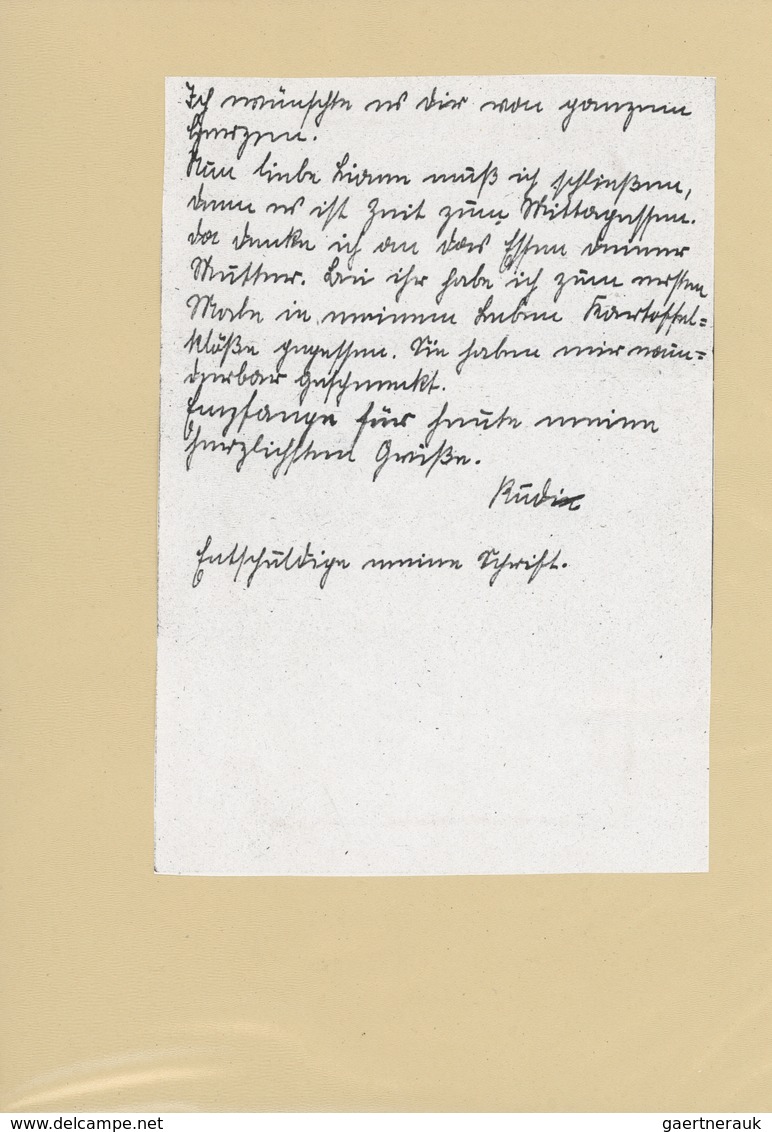 Ich wünschte es dir von ganzem
Herzen.
Nun liebe Liane muß ich schließen,
denn es ist Zeit zum Mittagessen.
Da denke ich an das Essen deiner
Mutter. Bei ihr habe ich zum ersten
Male in meinem Leben Kartoffel=
klöße gegessen. Sie haben mir wun=
derbar geschmeckt.
Empfange für heute meine
herzlichsten Grüße.
Rudi
Entschuldige meine Schrift.
www.delcampe.net
gaertnerauk